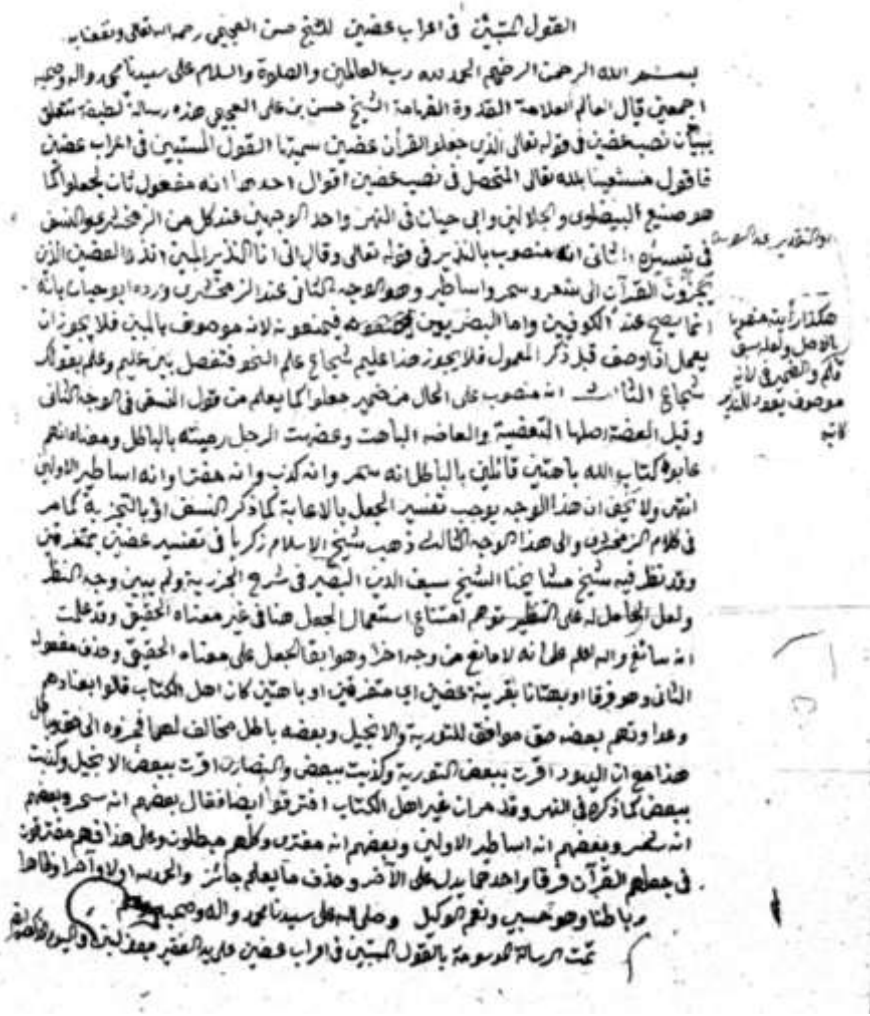 القول المتبين في اعراب عضين للشيخ حسن العجيمي رحمه الله تعالى ونفعنا به
بسم الله الرحمن الرحيم الحمد لله رب العالمين والصلاة والسلام على سيدنا محمد واله وصحبه
اجمعين قال العالم العلامة القدوة الفهامة الشيخ حسن بن على العجيمي هذه رسالة لطيفة تتعلق
ببيان نصب عضين في قوله تعالى الذين جعلوا القرآن عضين سميتها القول المستبين في اعراب عضين
فاقول مستعينا بالله تعالى المتحصل في نصب عضين اقوال احدها انه مفعول ثان لجعلوا كما
هو صنيع البيضاوى والجلالين وابي حيان في النهر واحد الوجهين عند كل من الزمخشرى والنسفى
في تفسيره الثاني انه منصوب بالنذير في قوله تعالى وقل انى انا النذير المبين انذر العضين الذين
يجزؤن القرآن الى شعر وسحر واساطير وهو الوجه الثانى عند الزمخشرى ورده ابو حيان بانه
انما يصح عند الكوفيين واما البصريون فيمنعونه لانه موصوف بالمبين فلا يجوز ان
يعمل اذا وصف قبل ذكر المعمول فلا يجوز هذا عليم شجاع علم النحو فتفصل بين عليم وعلم بقولك
شجاع الثالث انه منصوب على الحال من ضمير جعلوا كما يعلم من قول النسفى في الوجه الثانى
وقيل العضة اصلها التعضية والعاضه الباهت وعضهت الرجل رميته بالباطل ومعناه انهم
عابوا كتاب الله باهتين قائلين بالباطل انه سحر وانه كذب وانه مفترا وانه اساطير الاولين
انتهى ولا يخفى ان هذا الوجه يوجب تفسير الجعل بالاعابة كما ذكر النسفى او بالتجزية كما مر
في كلام الزمخشرى والى هذا الوجه الثالث ذهب شيخ الاسلام زكريا في تفسير عضين بمتفرقين
وقد نظر فيه شيخ مشايخنا الشيخ سيف الدين البصير في شرح الجزرية ولم يبين وجه النظر
ولعل الحامل له على التنظير توهم امتناع استعمال الجعل هنا في غير معناه الحقيقى وقد علمت
انه سائغ والله اعلم على انه لا مانع من وجه اخر وهو ابقا الجعل على معناه الحقيقى وحذف مفعوله
الثانى وهو فرقا او بهتانا بقرينة عضين اى متفرقين او باهتين كان اهل الكتاب قالوا بعنادهم
وعداوتهم بعضه حق موافق للتورية والانجيل وبعضه باطل مخالف لهما فجزوه الى حق وباطل
هذا مع ان اليهود اقرت ببعض التورية وكذبت ببعض والنصارى اقرت ببعض الانجيل وكذبت
ببعض كما ذكره في النهر وقد مر ان غير اهل الكتاب افترقوا ايضا فقال بعضهم انه سحر وبعضهم
انه شعر وبعضهم انه اساطير الاولين وبعضهم انه مفترى وكلهم مبطلون وعلى هذا فهم مفترقون
في جعلهم القرآن فرقا واحدهما يدل على الآخر وحذف ما يعلم جائز والحمد لله اولا وآخرا وظاهرا
وباطنا وهو حسبي ونعم الوكيل وصلى الله على سيدنا محمد واله وصحبه وسلم
تمت الرسالة الموسومة بالقول المتبين في اعراب عضين على يد الفقير
والتقدير عند
هكذا رأيته منصوبا
بالاصل ولعله سبق
قلم والضمير في لانه
موصوف يعود للنذير
كاتبه